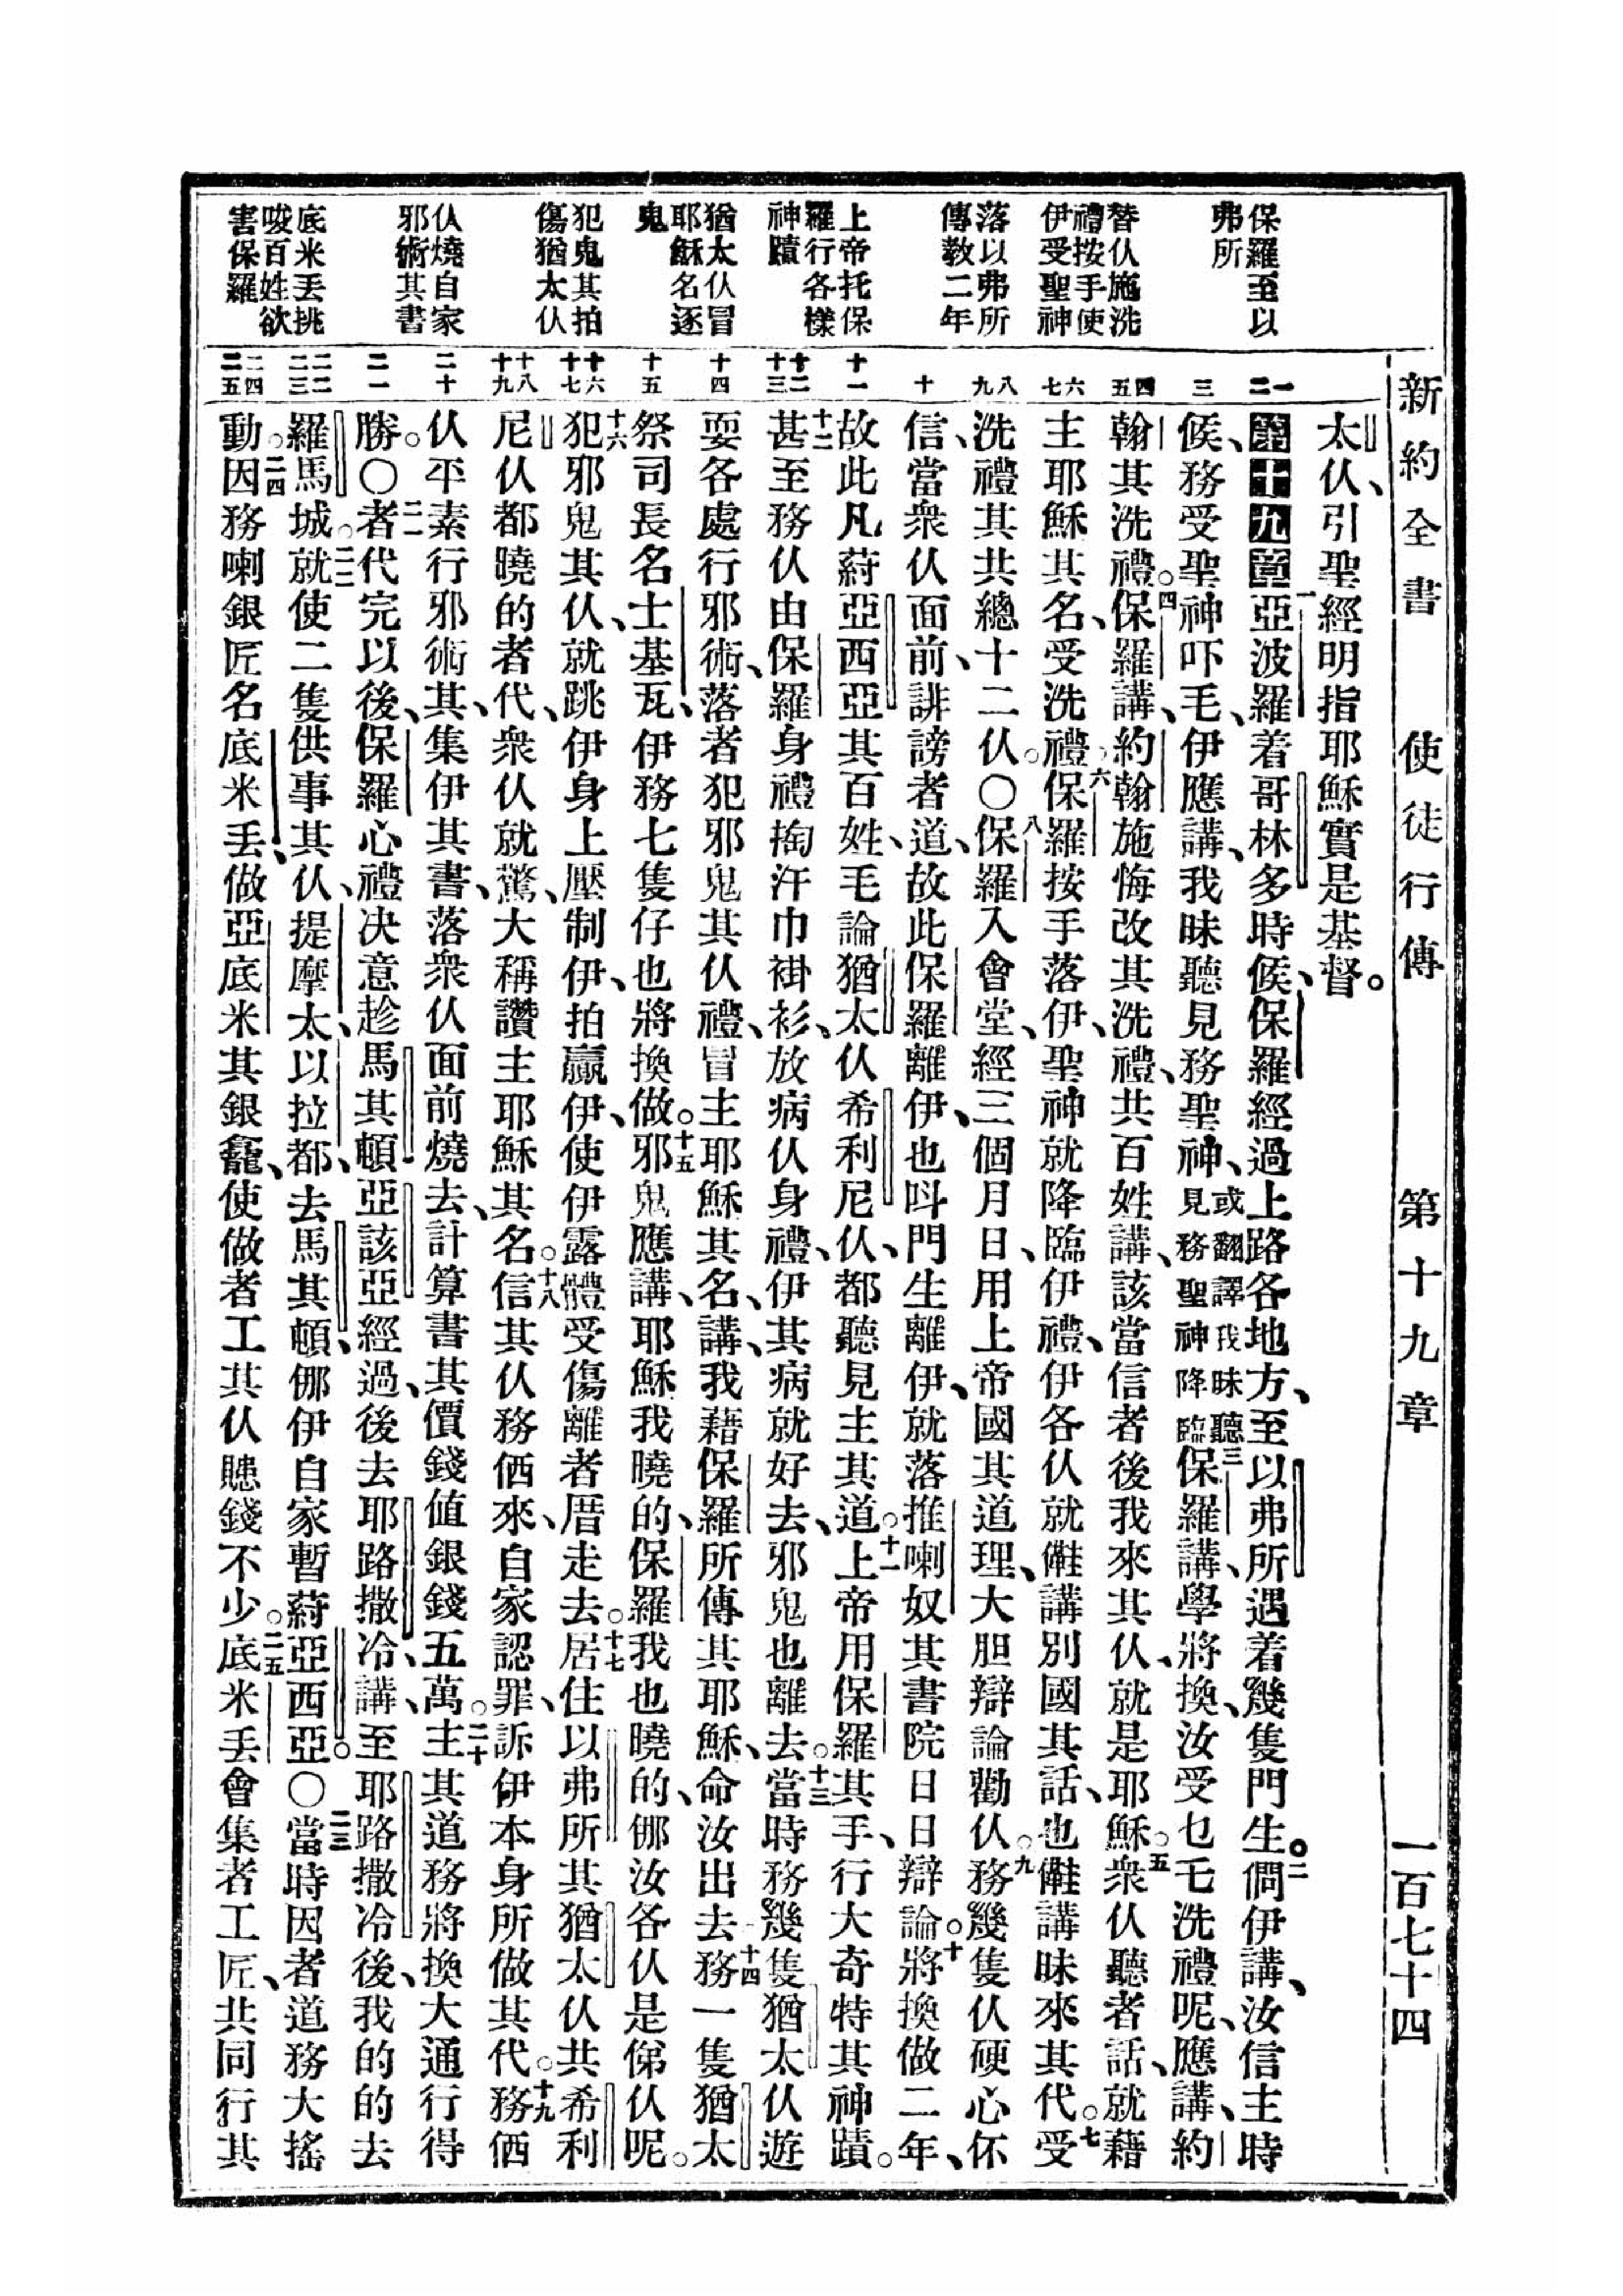 新約全書　使徒行傳　第十九章　一百七十四
保羅至以
弗所
替仸施洗
禮按手使
伊受聖神
落以弗所
傳教二年
上帝托保
羅行各樣
神蹟
猶太仸冒
耶穌名逐
鬼
犯鬼其拍
傷猶太仸
仸燒自家
邪術其書
底米丢挑
唆百姓欲
害保羅
一
二
三
四
五
六
七
八
九
十
十一
十二
十三
十四
十五
十六
十七
十八
十九
二十
二一
二二
二三
二四
二五
太仸、引聖經明指耶穌實是基督。
第十九章一亞波羅着哥林多時候、保羅經過上路各地方、至以弗所遇着幾隻門生。二僩伊講、汝信主時
候、務受聖神吓毛、伊應講、我昧聽見務聖神、或翻譯我昧聽見務聖神降臨三保羅講、學將換、汝受乜乇洗禮呢、應講、約
翰其洗禮。四保羅講、約翰施悔改其洗禮、共百姓講、該當信者後我來其仸、就是耶穌。五衆仸聽者話、就藉
主耶穌其名、受洗禮。六保羅按手落伊、聖神就降臨伊禮、伊各仸就㑚講別國其話、也㑚講昧來其代。七受
洗禮其共總十二仸。〇八保羅入會堂、經三個月日、用上帝國其道理、大胆辯論勸仸。九務幾隻仸硬心伓
信、當衆仸面前、誹謗者道、故此保羅離伊、也呌門生離伊、就落推喇奴其書院日日辯論。十將換做二年、
故此凡蒔亞西亞其百姓、毛論猶太仸希利尼仸、都聽見主其道。十一上帝用保羅其手、行大奇特其神蹟。
十二甚至務仸由保羅身禮掏汗巾褂衫、放病仸身禮、伊其病就好去、邪鬼也離去。十三當時務幾隻猶太仸遊
耍各處行邪術、落者犯邪鬼其仸禮、冒主耶穌其名、講、我藉保羅所傳其耶穌、命汝出去。十四務一隻猶太
祭司長名士基瓦、伊務七隻仔也將換做。十五邪鬼應講、耶穌我曉的、保羅我也曉的、㑚汝各仸是俤仸呢。
十六犯邪鬼其仸、就跳伊身上壓制伊、拍贏伊、使伊露體受傷離者厝走去。十七居住以弗所其猶太仸共希利
尼仸都曉的者代、衆仸就驚、大稱讚主耶穌其名。十八信其仸務価來、自家認罪、訴伊本身所做其代。十九務価
仸平素行邪術其、集伊其書、落衆仸面前燒去、計算書其價錢值銀錢五萬。二十主其道務將換大通行得
勝。〇二一者代完以後、保羅心禮决意趁馬其頓亞該亞經過、後去耶路撒冷、講、至耶路撒冷後、我的的去
羅馬城。二二就使二隻供事其仸、提摩太、以拉都、去馬其頓、㑚伊自家暫蒔亞西亞。〇二三當時因者道務大搖
動。二四因務喇銀匠名底米丢、做亞底米其銀龕、使做者工其仸賺錢不少。二五底米丢會集者工匠、共同行其